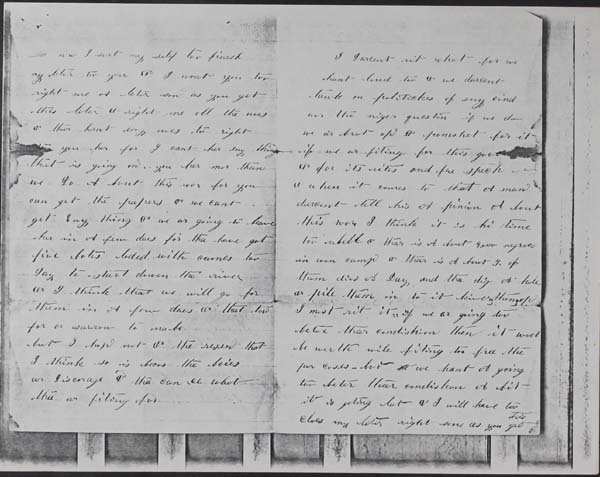 now I sert my self too finish
my leter to you & I wont you too
right me a leter soon as you get
this leter & right me all the nues
& thar hant eny nues to right
you her for I cant her eny thing
that is going on. you her mor than
we Do A bout this wor for you
can get the papers & we cant
get Eny thing & we ar going to leave
her in A few daes for tha have got
five botes loded with canons too
Day to start down the river
& I think that we will go for
them in A few daes & that too
for or warrow to mack
but I hope not & the reson that
I think so is becos the boies
ar Discorage & tha can see what
tha ar fiting for
I Darsent rit what for we
hant loud too & we darsent
talk on politickes of eny cind
nor the niger question if we do
we ar brot up & punishet for it
if we ar fiting for this
& for its rites and fre speck
& when it comes to that A man
darsent tell his A pinion A bout
this wor I think it is hi time
too rebill & thar is A bout negroes
in our camp & thar is A bout of
them dies A Day and tha dig A hole
& pile them in to it
I must rit if we ar going too
beter thar condishion then it wood
be worth wile fiting to free the
por cases but we hant A going
too beter thar condishion A bit
it is geting lat & I will have too
Close my leter right sone as you get
this